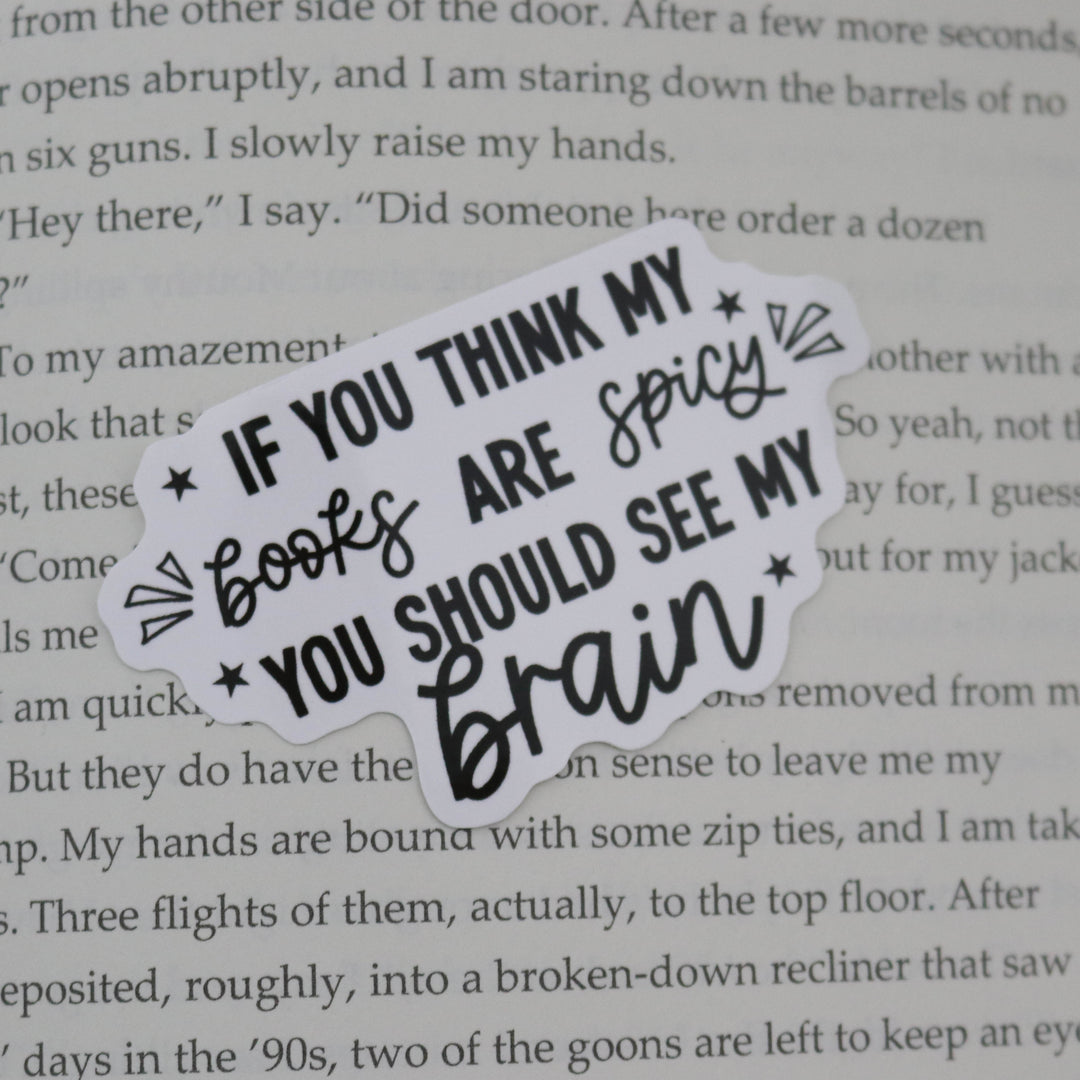 from the other side of the door. After a few more seconds,
r opens abruptly, and I am staring down the barrels of no
n six guns. I slowly raise my hands.
"Hey there," I say. "Did someone here order a dozen
?"
To my amazement
other with a
look that s
So yeah, not th
st, these
ay for, I guess
"Come
out for my jack
ls me
I am quick
removed from m
But they do have the
on sense to leave me my
mp. My hands are bound with some zip ties, and I am tak
s. Three flights of them, actually, to the top floor. After
eposited, roughly, into a broken-down recliner that saw
' days in the '90s, two of the goons are left to keep an eye
IF YOU THINK MY
books ARE spicy
YOU SHOULD SEE MY
brain